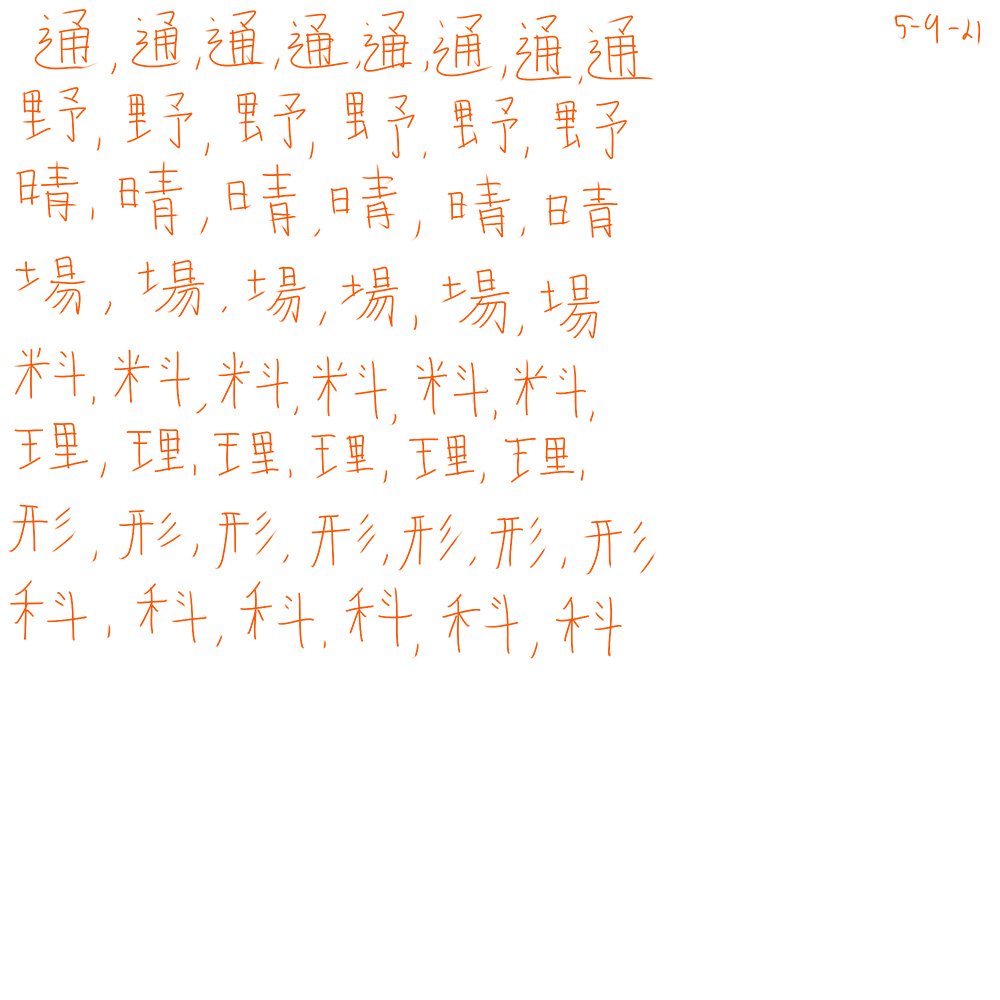 5-9-21
通,通,通,通,通,通,通,通
野,野,野,野,野,野
晴,晴,晴,晴,晴,晴
場,場.場,場,場,場
料,料,料,料,料,料,
理,理,理,理,理,理,
形,形,形,形,形,形,形
科,科,科.科,科,科